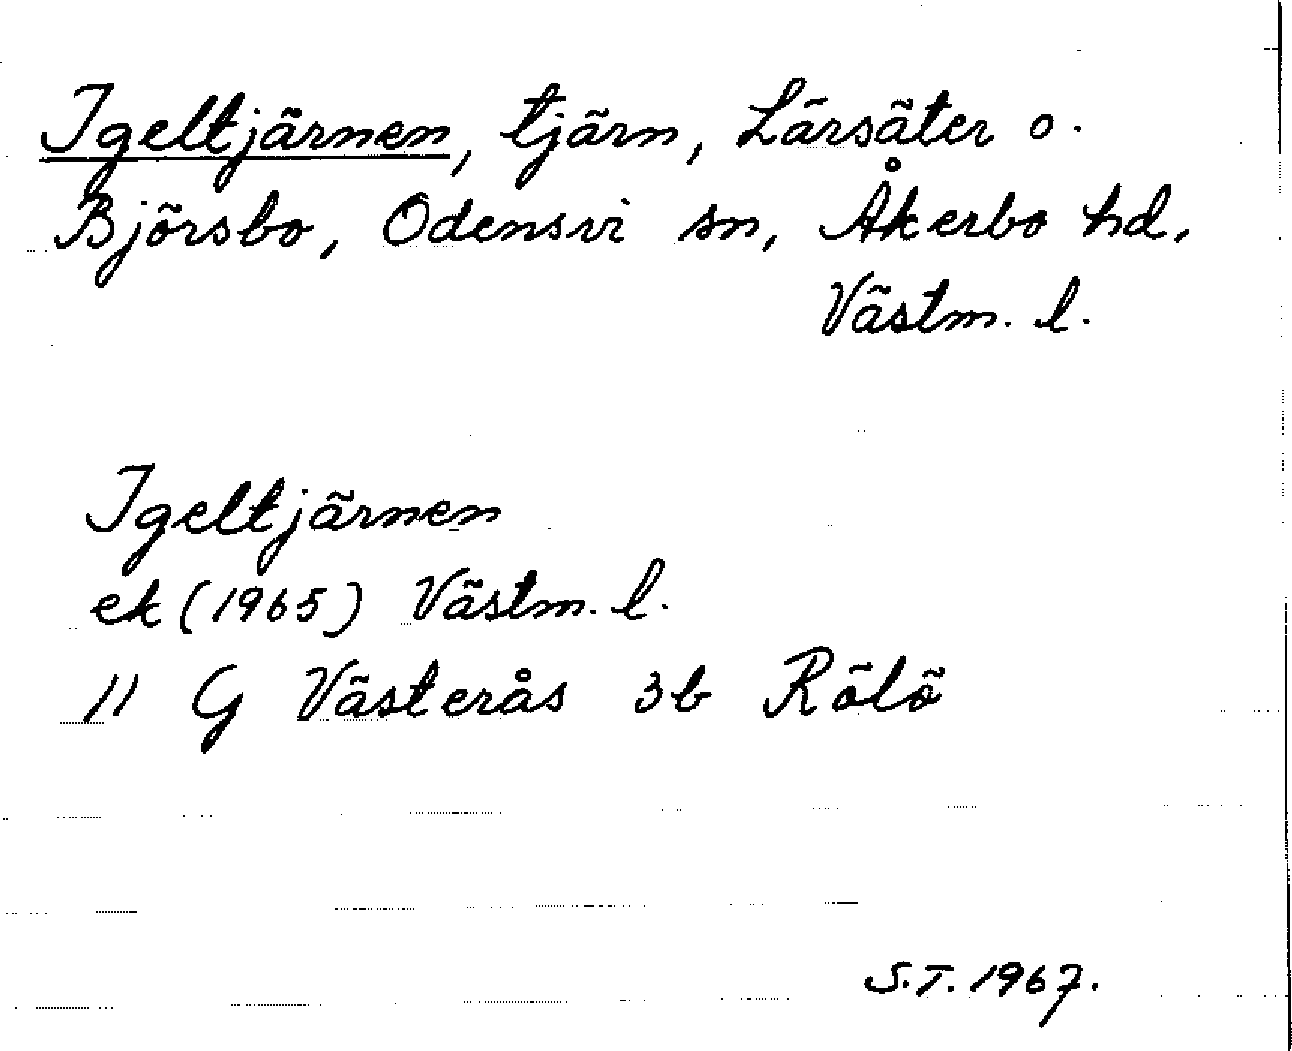 Igeltjärnen, tjärn, Lärsäter o.
Björsbo, Odensvi sn, Åkerbo hd,
Västm. l.
Igeltjärnen
ek (1965) Västm. l.
11 G Västerås 3b Rölö
S.T. 1967.